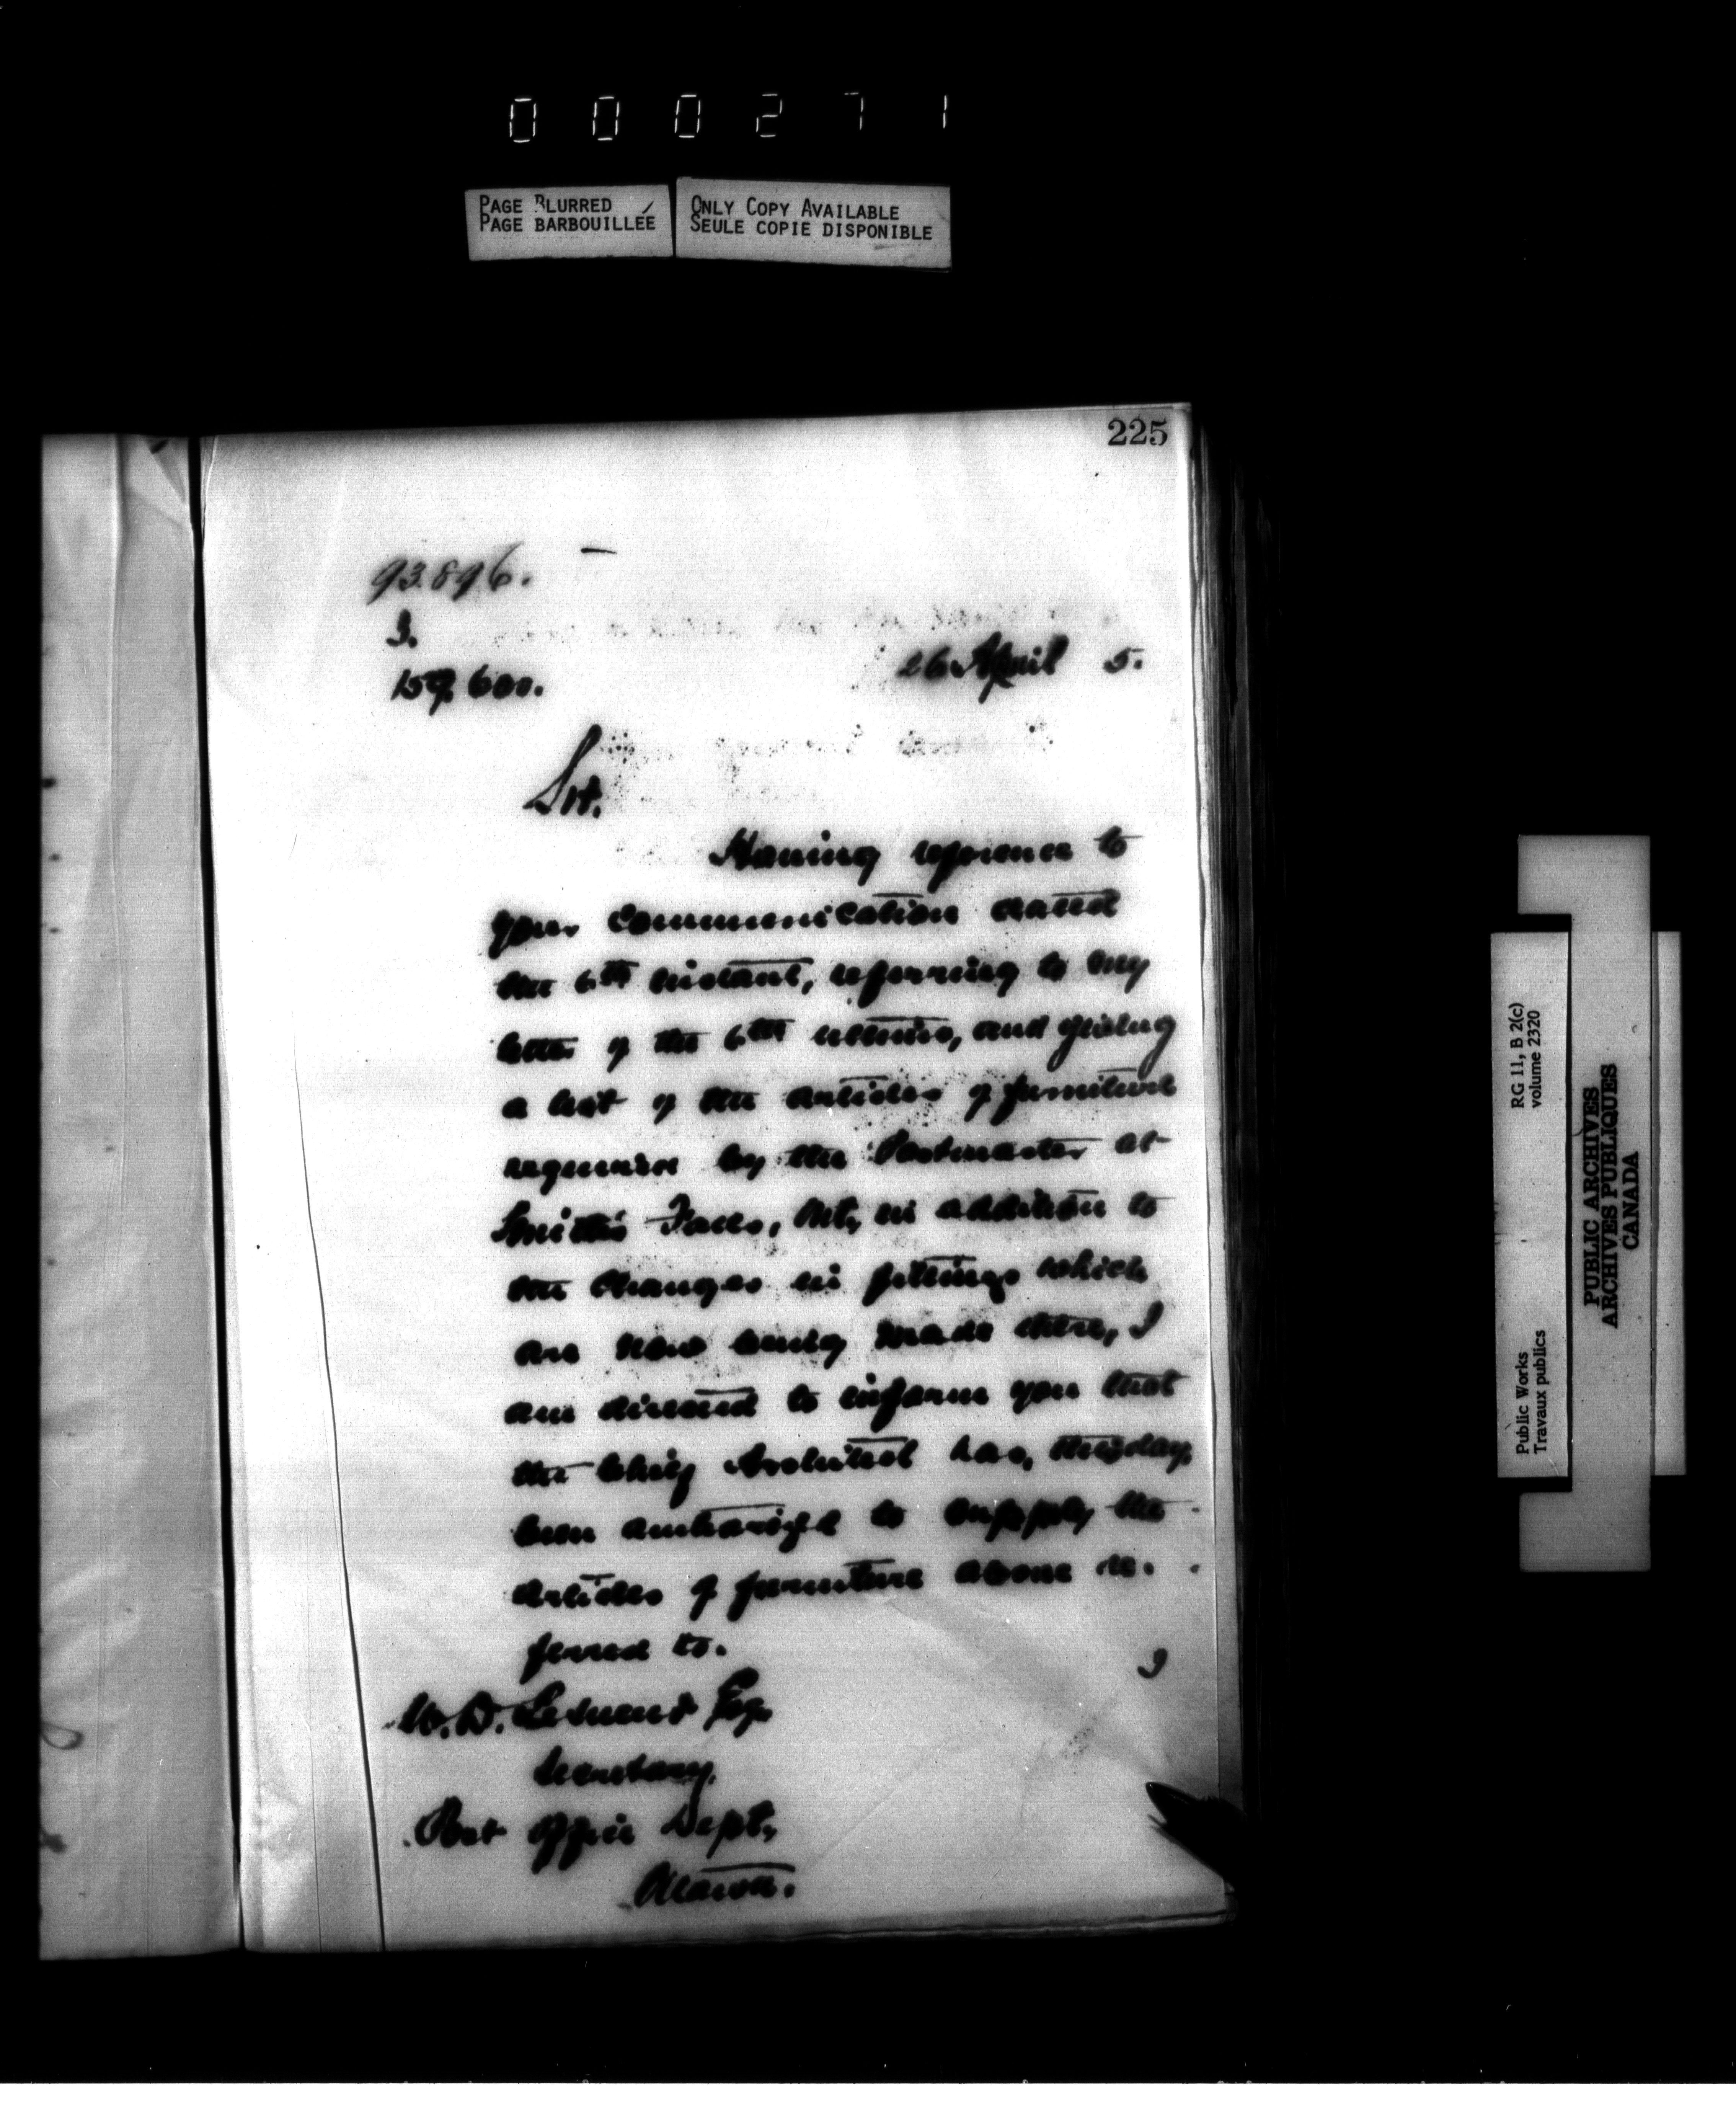 000271
PAGE BLURRED
PAGE BARBOUILLÉE
ONLY COPY AVAILABLE
SEULE COPIE DISPONIBLE
225
93.896.
3.
159.600.
26 April 5.
Sir.
Having reference to
your communication dated
the 6th instant, referring to my
letter of the 6th ultimo, and giving
a list of the articles of furniture
required by the Postmaster at
Smith's Falls, Ont, in addition to
the changes in fittings which
are now being made there, I
am directed to inform you that
the Chief Architect has, this day,
been authorized to supply the
articles of furniture above re-
ferred to.
I
W.D. LeSueur Esq.
Secretary,
Post Office Dept,
Ottawa.
RG 11, B 2(c)
volume 2320
Public Works
Travaux publics
PUBLIC ARCHIVES
ARCHIVES PUBLIQUES
CANADA